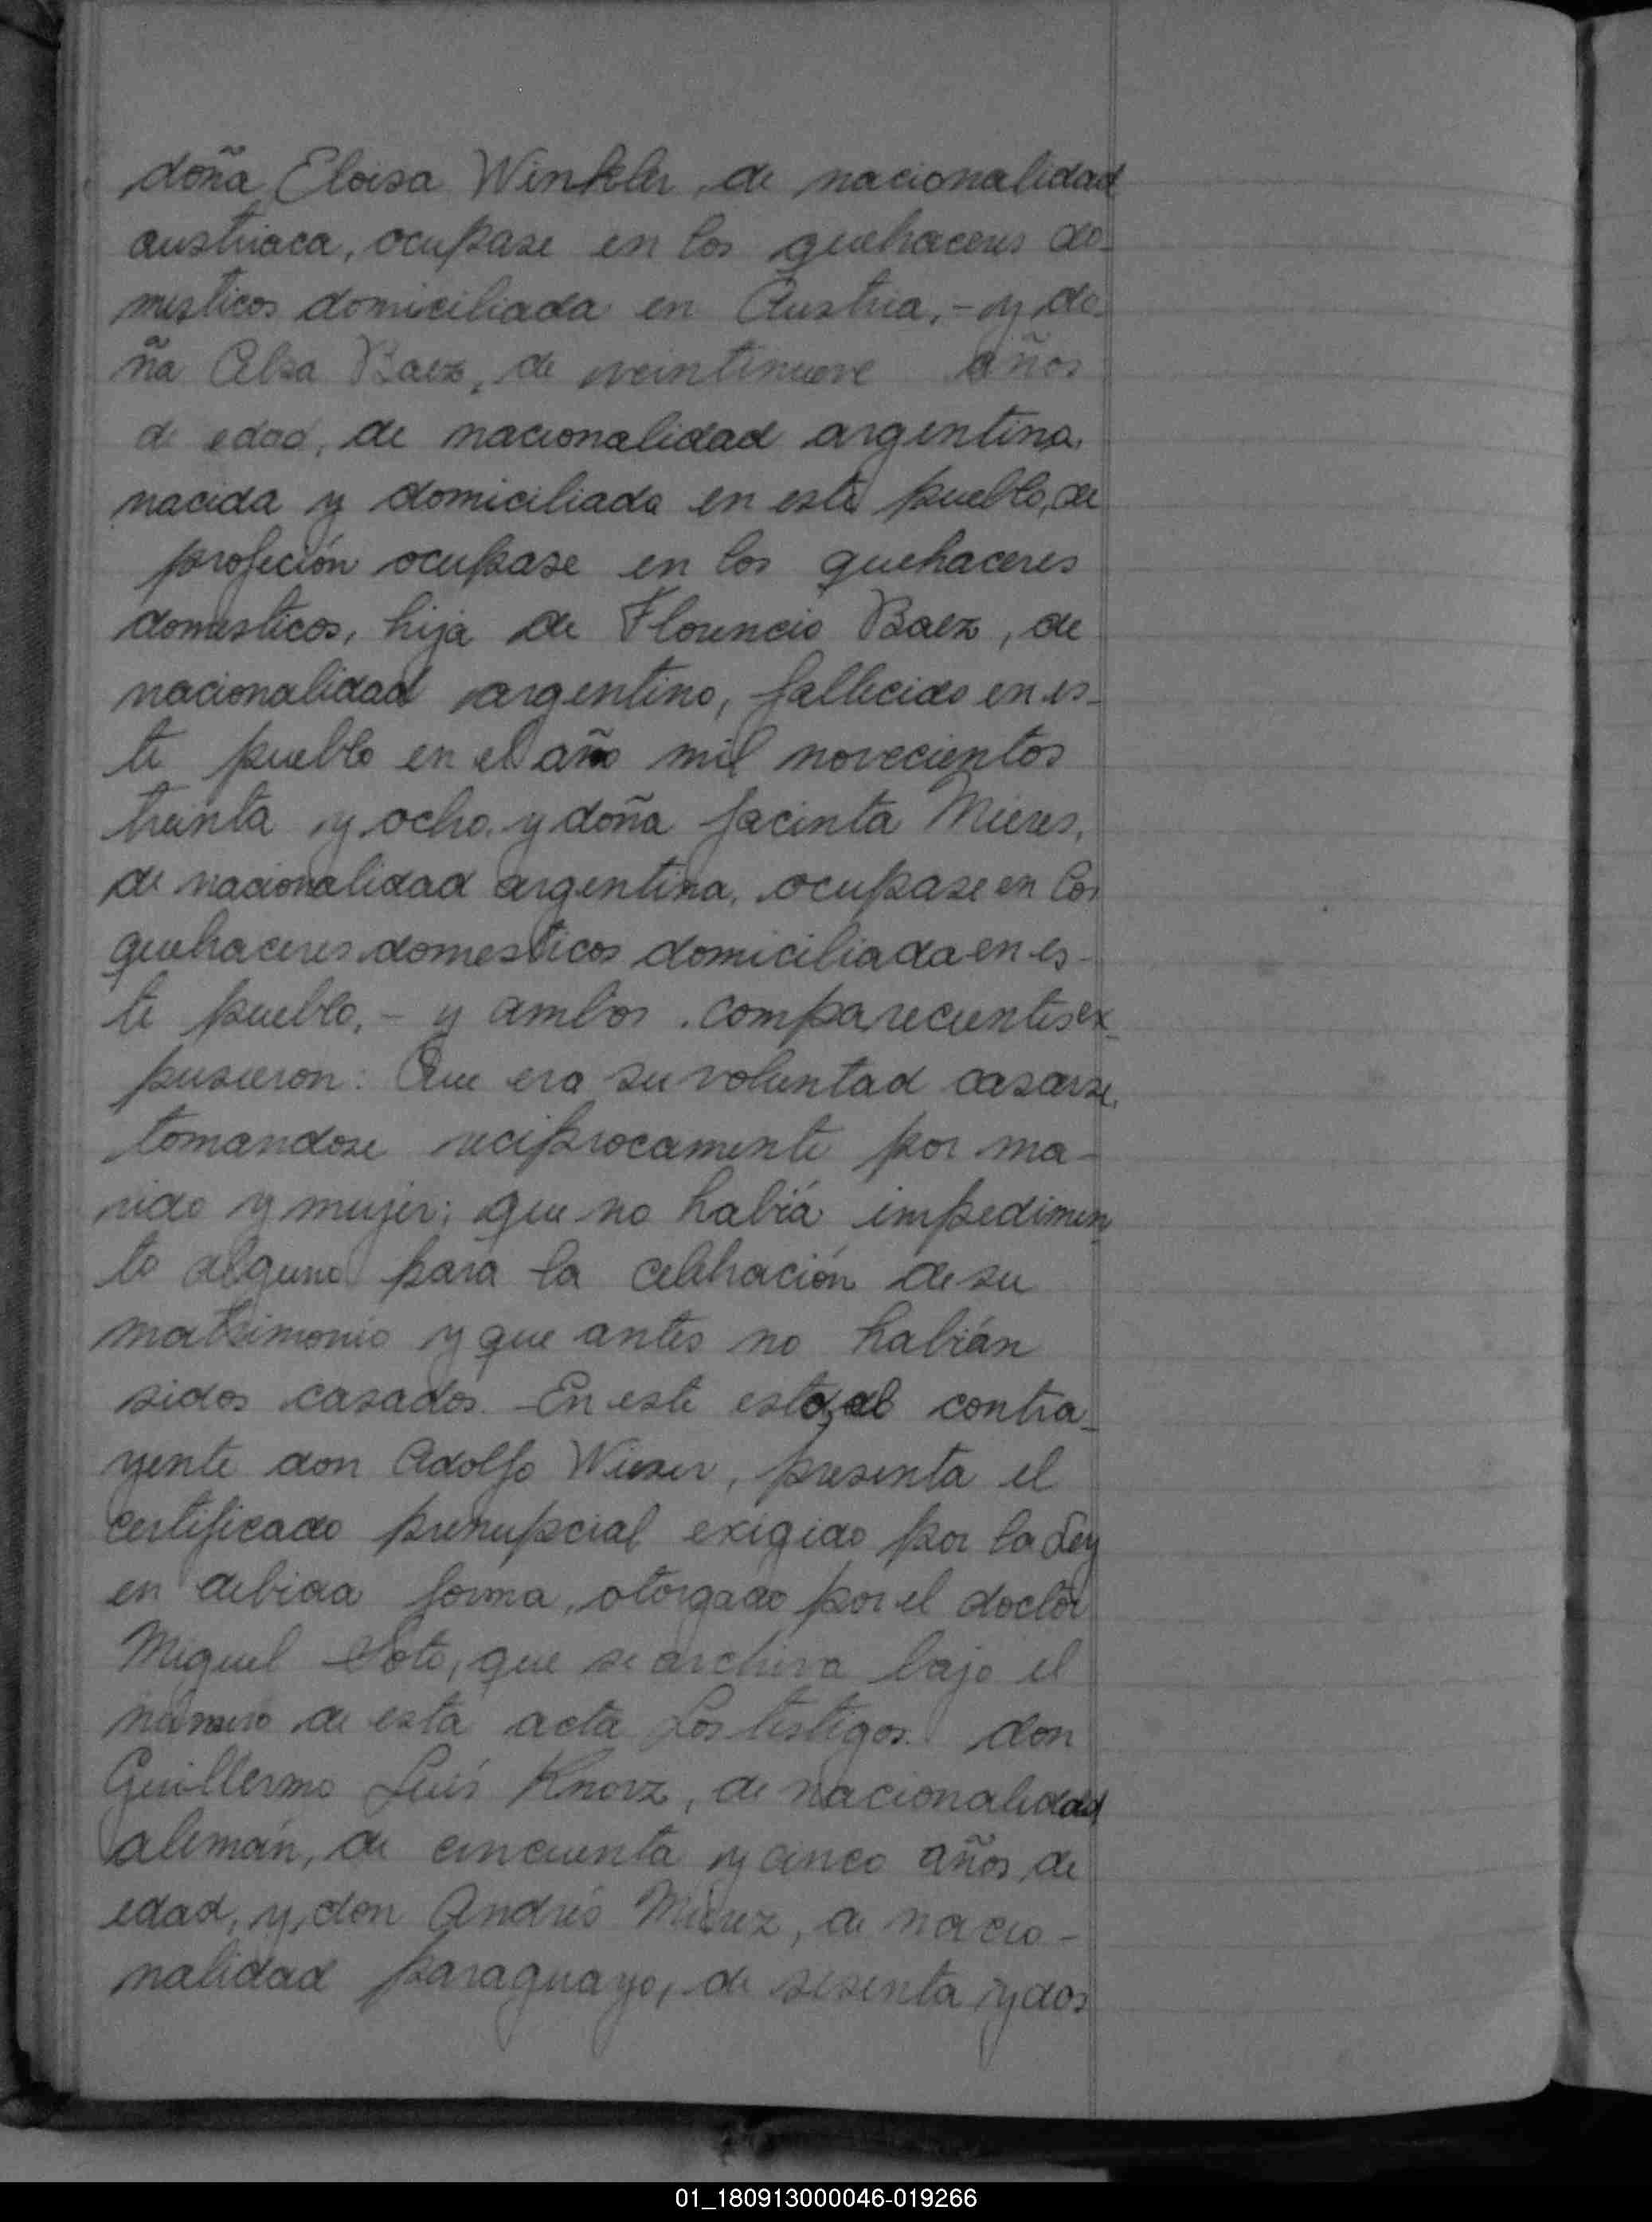 doña Eloisa Winkler, de nacionalidad
austriaca, ocupase en los quehaceres do-
mesticos domiciliada en Austria, - y do-
ña Elsa Baez, de veintinueve años
de edad, de nacionalidad argentina,
nacida y domiciliada en este pueblo, de
profeción ocupase en los quehaceres
domesticos, hija de Florencio Baez, de
nacionalidad argentino, fallecido en es-
te pueblo en el año mil novecientos
treinta y ocho y doña Jacinta Mieres,
de nacionalidad argentina, ocupase en los
quehaceres domesticos domiciliada en es-
te pueblo, - y ambos comparecientes ex-
pusieron: Que era su voluntad casarse,
tomandose reciprocamente por ma-
rido y mujer; que no habiá impedimen
to alguno para la celebración de su
matrimonio y que antes no habián
sidos casados. En este esto, el contra-
yente don Adolfo Wieser, presenta el
certificado prenupcial exigido por la Ley
en debida forma, otorgado por el doctor
Miguel Soto, que se archiva bajo el
número de esta acta Los testigos. don
Guillermo Luis Knorz, de nacionalidad
alemán, de cincuenta y cinco años de
edad, y, don Andrés Mierez, de nacio-
nalidad paraguayo, de sesenta y dos
01_180913000046-019266